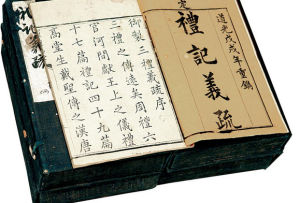 道光戊戌年重鐫
禮記義疏
御製三禮義疏序
三禮之傳遠矣周禮六
官河間獻王上之儀禮
十七篇禮記四十九篇
高堂生戴聖傳之漢唐